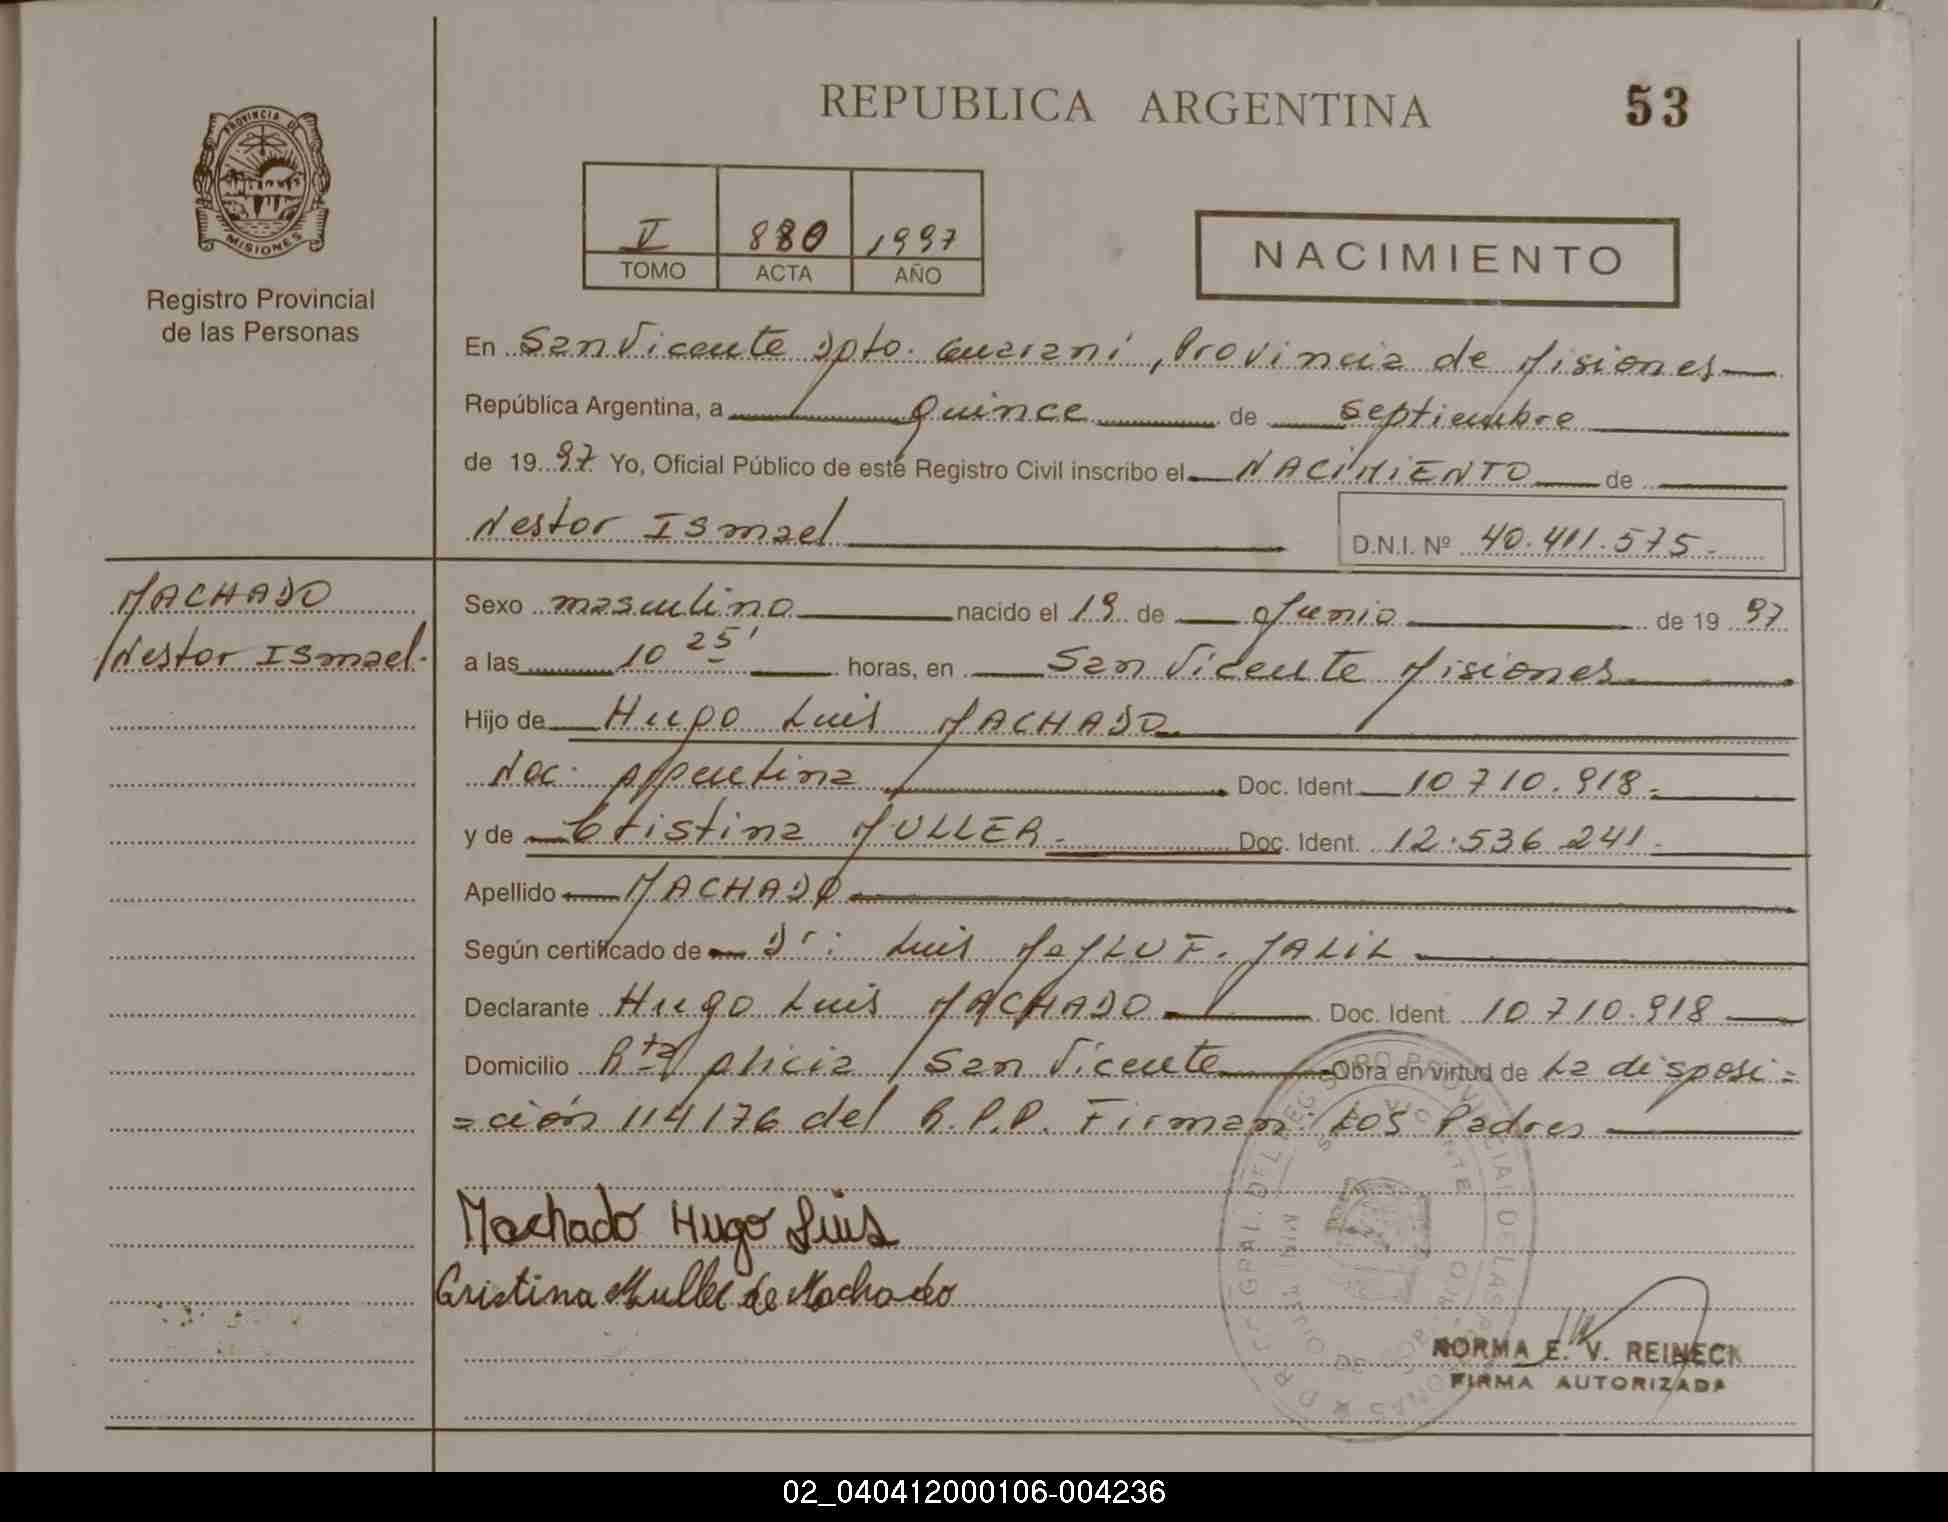 REPUBLICA ARGENTINA
53
PROVINCIA DE
MISIONES
Registro Provincial
de las Personas
V 880 1997
TOMO ACTA AÑO
NACIMIENTO
En San Vicente Dpto. Guaraní, Provincia de Misiones
República Argentina, a Quince de Septiembre
de 1997 Yo, Oficial Público de este Registro Civil inscribo el NACIMIENTO de
Nestor Ismael
D.N.I. Nº 40.411.575-
MACHADO
Nestor Ismael-
Sexo masculino nacido el 19 de Junio de 1997
a las 10 25' horas, en San Vicente Misiones
Hijo de Hugo Luis MACHADO
Nac. Argentina Doc. Ident. 10710.918-
y de Cristina MULLER- Doc. Ident. 12.536 241-
Apellido MACHADO
Según certificado de Dr: Luis JALIL
Declarante Hugo Luis MACHADO Doc. Ident. 10710.918
Domicilio Rta Alicia San Vicente Obra en virtud de La disposi=
=ción 114/76 del R.P.P. Firman: Los Padres
Machado Hugo Luis
Cristina Muller de Machado
NORMA E. V. REINECK
FIRMA AUTORIZADA
02_040412000106-004236